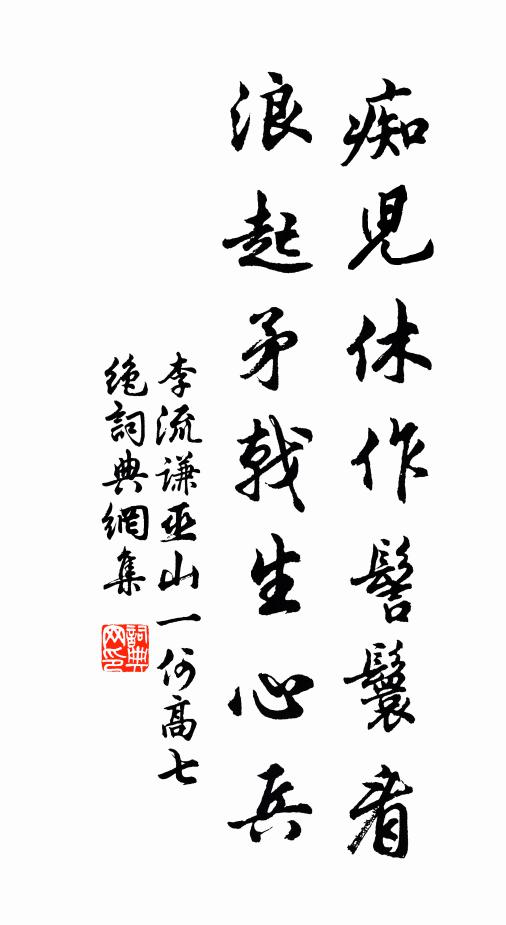 痴兒休作髻鬟看
浪起矛戟生心兵
李流謙巫山一何高七
絶詞典網集
詞典网印